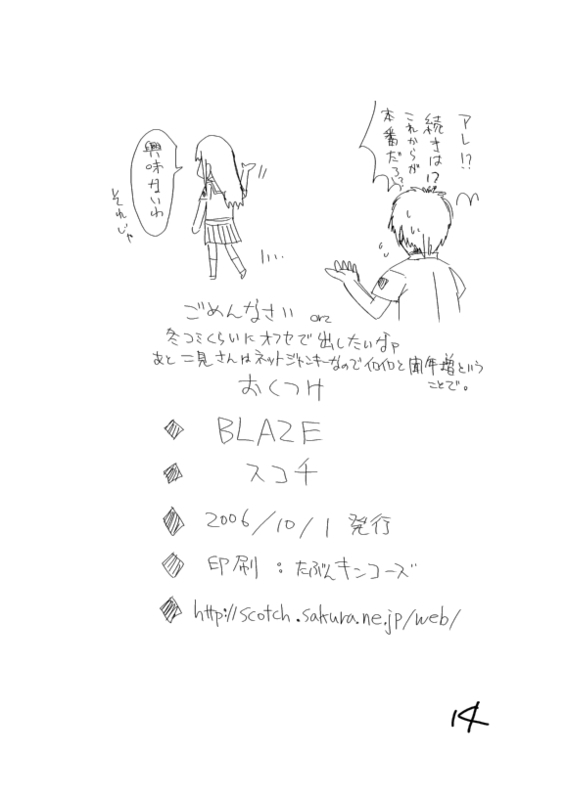 アレ!?
続きは!?
これからが
本番だろ!?
興味ないわ
それじゃ
ごめんなさい orz
冬コミくらいにオフセで出したいなp
あと二見さんはネットジャンキーなのでイロイロと耳年増という
ことで。
おくつけ
BLAZE
スコチ
2006/10/1 発行
印刷:たぶんキンコーズ
http://scotch.sakura.ne.jp/web/
14